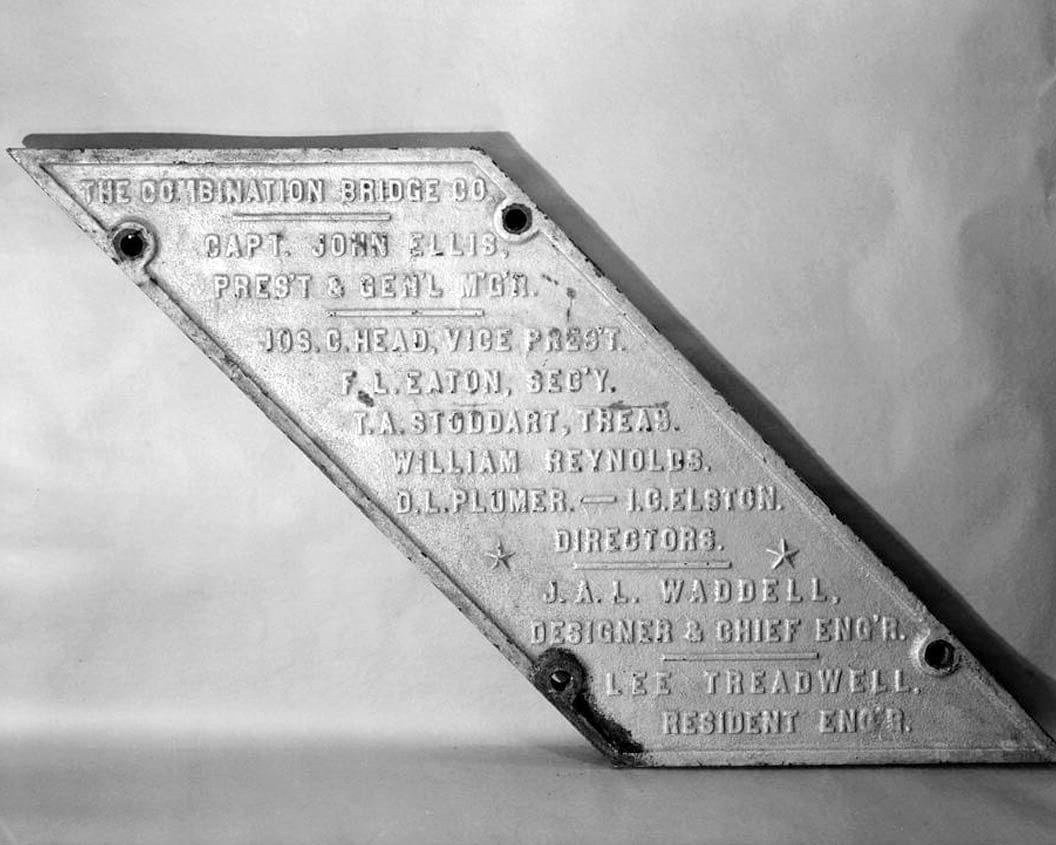 THE COMBINATION BRIDGE CO.
CAPT. JOHN ELLIS,
PRES'T & GEN'L M'G'R.
JOS. C. HEAD, VICE PRES'T.
F. L. EATON, SEC'Y.
T. A. STODDART, TREAS.
WILLIAM REYNOLDS.
D. L. PLUMER. — I. C. ELSTON.
DIRECTORS.
J. A. L. WADDELL,
DESIGNER & CHIEF ENG'R.
LEE TREADWELL,
RESIDENT ENG'R.